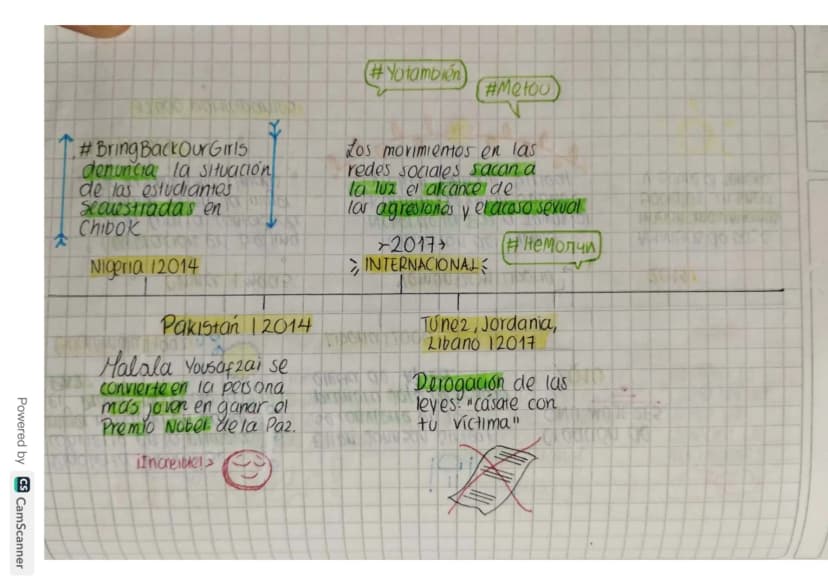 #Yotambién
#Metou
#BringBackOurGirls
denuncia la situación
de las estudiantes
secuestradas en
Chibok
Nigeria | 2014
Los movimientos en las
redes sociales sacan a
la luz el alcance de
las agresiones y el acoso sexual
2017
#НеМолчи
INTERNACIONAL
Pakistán | 2014
Malala Yousafzai se
convierte en la persona
más joven en ganar el
Premio Nobel de la Paz.
¡Increible!
Túnez, Jordania,
Libano | 2017
Derogación de las
leyes: "cásate con
tu víctima"
Powered by CS CamScanner